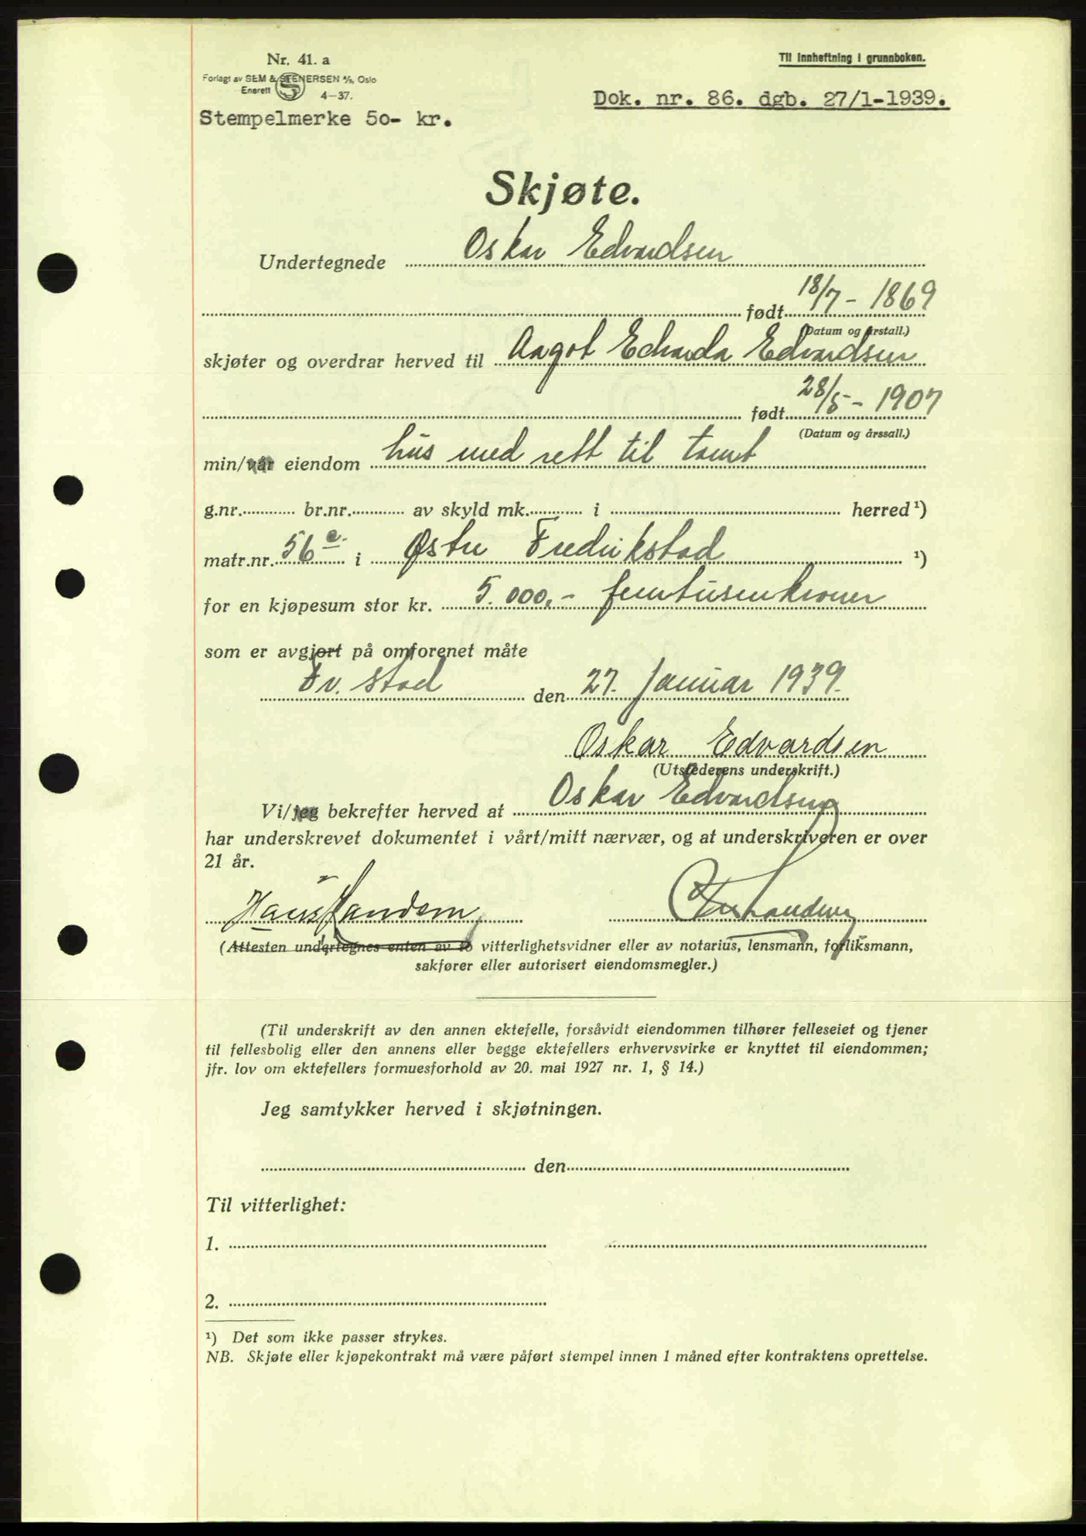 Nr. 41. a
Til innheftning i grunnboken.
Forlagt av SEM & STENERSEN A/S, Oslo
Enerett 4-37.
Dok. nr. 86. dgb. 27/1-1939.
Stempelmerke 50- kr.
Skjøte.
Undertegnede Oskar Edvardsen
født 18/7 - 1869
(Datum og årstall.)
skjøter og overdrar herved til Aagot Edvarda Edvardsen
født 28/5 - 1907
(Datum og årssall.)
min/vår eiendom hus med rett til tomt
g.nr. br.nr. av skyld mk. i herred ¹)
matr.nr. 56 e i Østre Fredrikstad ¹)
for en kjøpesum stor kr. 5.000,- femtusenkroner
som er avgjort på omforenet måte
Fr.stad den 27. Januar 1939.
Oskar Edvardsen
(Utstederens underskrift.)
Vi/jeg bekrefter herved at Oskar Edvardsen
har underskrevet dokumentet i vårt/mitt nærvær, og at underskriveren er over
21 år.
(Attesten undertegnes enten av to vitterlighetsvidner eller av notarius, lensmann, forliksmann,
sakfører eller autorisert eiendomsmegler.)
(Til underskrift av den annen ektefelle, forsåvidt eiendommen tilhører felleseiet og tjener
til fellesbolig eller den annens eller begge ektefellers erhvervsvirke er knyttet til eiendommen;
jfr. lov om ektefellers formuesforhold av 20. mai 1927 nr. 1, § 14.)
Jeg samtykker herved i skjøtningen.
den
Til vitterlighet:
1.
2.
¹) Det som ikke passer strykes.
NB. Skjøte eller kjøpekontrakt må være påført stempel innen 1 måned efter kontraktens oprettelse.